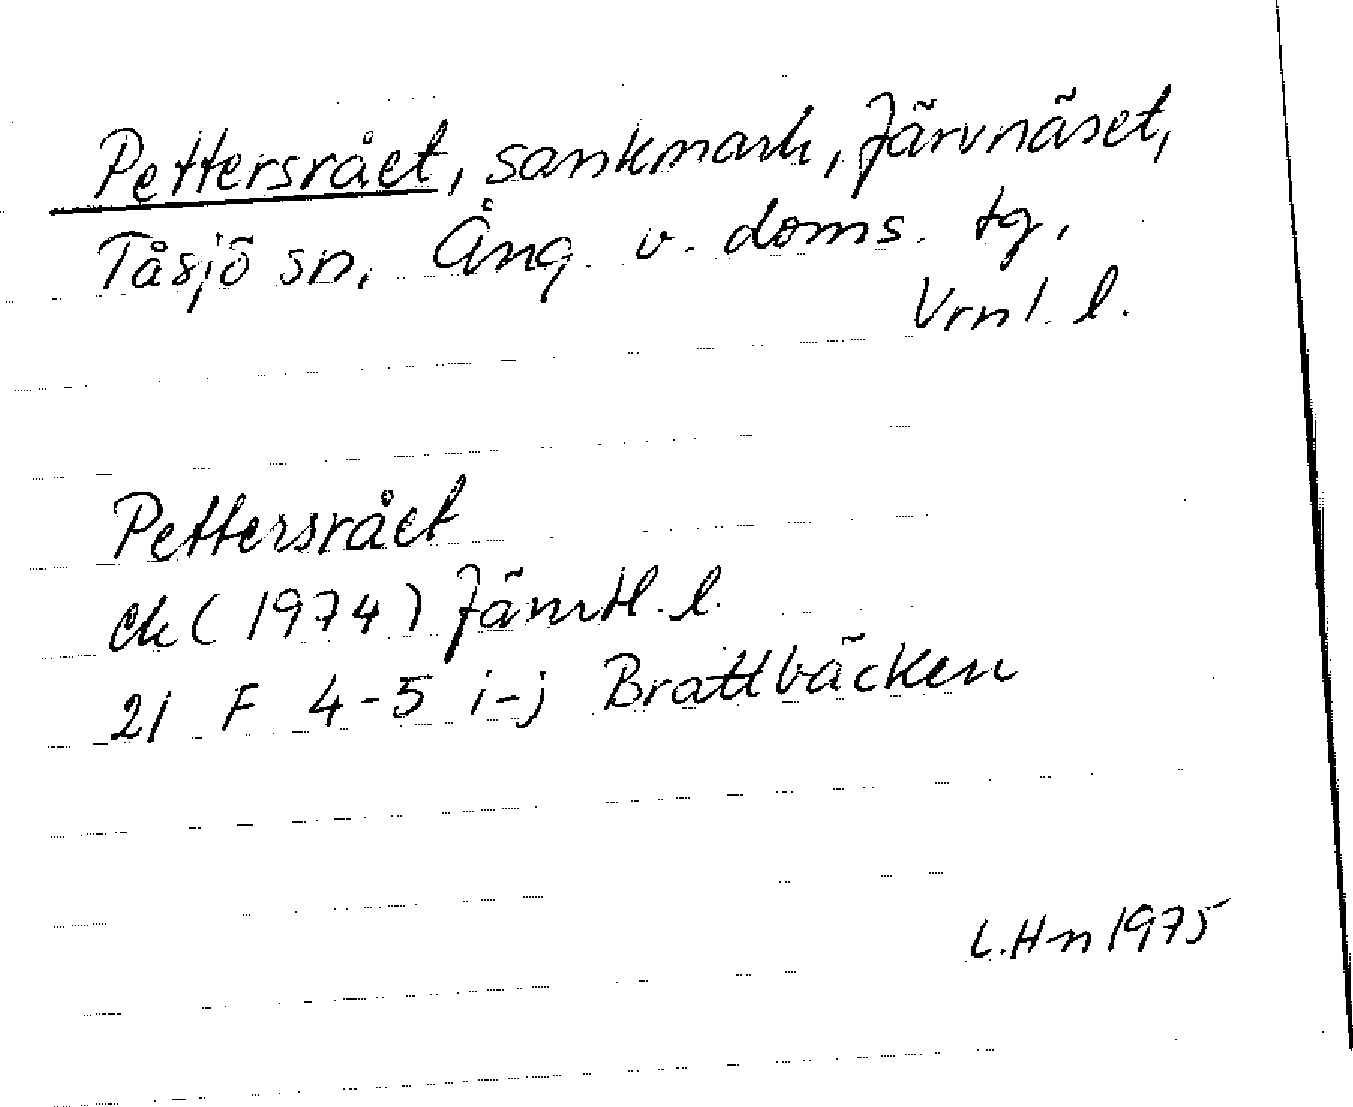 Pettersrået, sankmark, Järvnäset,
Tåsjö sn, Ång. v. doms. tg,
Vrnl. l.
Pettersrået
ek (1974) Jämtl. l.
21 F 4-5 i-j Brattbäcken
L.Hn 1975